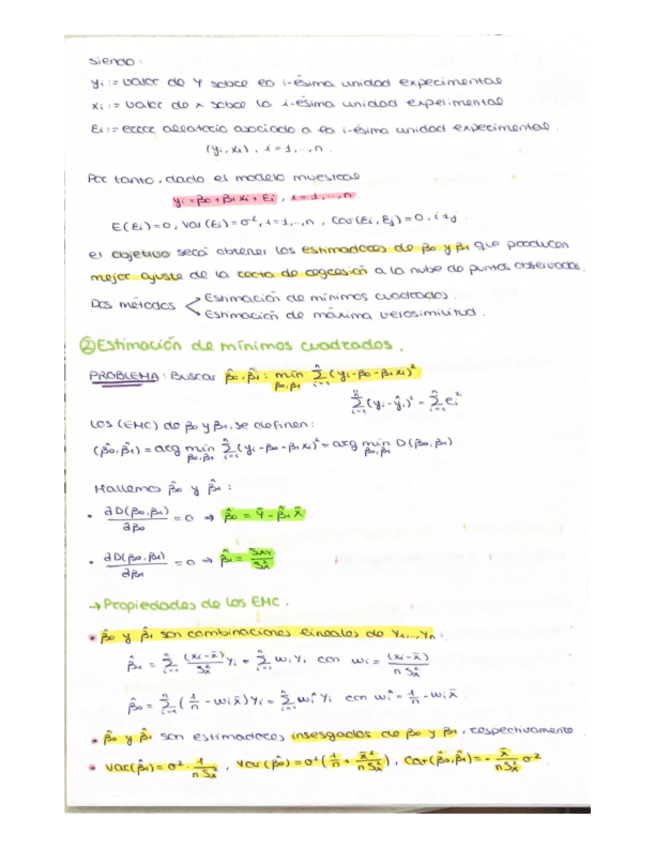 siendo:
yi := valor de Y sobre la i-ésima unidad experimental
xi := valor de x sobre la i-ésima unidad experimental
Ei := error aleatorio asociado a la i-ésima unidad experimental.
(yi, xi), i=1,...,n.
Por tanto, dado el modelo muestral
yi = β0 + β1 xi + Ei, i=1,...,n.
E(Ei)=0, Var(Ei)=σ², i=1,...,n, Cov(Ei, Ej)=0, i≠j.
el objetivo será obtener los estimadores de β0 y β1 que producen
mejor ajuste de la recta de regresión a la nube de puntos observados.
Dos métodos < Estimación de mínimos cuadrados.
Estimación de máxima verosimilitud.
② Estimación de mínimos cuadrados.
PROBLEMA: Buscar β̂0, β̂1 : min_{β0,β1} Σ_{i=1}^n (yi - β0 - β1xi)²
Σ_{i=1}^n (yi - ŷi)² = Σ_{i=1}^n ei²
Los (EMC) de β0 y β1, se definen:
(β̂0, β̂1) = arg min_{β0,β1} Σ_{i=1}^n (yi - β0 - β1xi)² = arg min_{β0,β1} D(β0, β1)
Hallemos β̂0 y β̂1:
• ∂D(β0, β1)/∂β0 = 0 → β̂0 = Ȳ - β̂1 x̄
• ∂D(β0, β1)/∂β1 = 0 → β̂1 = Sxy/S²x
→ Propiedades de los EMC.
• β̂0 y β̂1 son combinaciones lineales de Y1,...,Yn:
β̂1 = Σ_{i=1}^n (xi - x̄)/S²x Yi = Σ_{i=1}^n wi Yi con wi = (xi - x̄)/(n S²x)
β̂0 = Σ_{i=1}^n (1/n - wi x̄) Yi = Σ_{i=1}^n wi* Yi con wi* = 1/n - wi x̄
• β̂0 y β̂1 son estimadores insesgados de β0 y β1, respectivamente
• Var(β̂1) = σ² · 1/(n S²x), Var(β̂0) = σ² (1/n + x̄²/(n S²x)), Cov(β̂0, β̂1) = - x̄/(n S²x) σ²